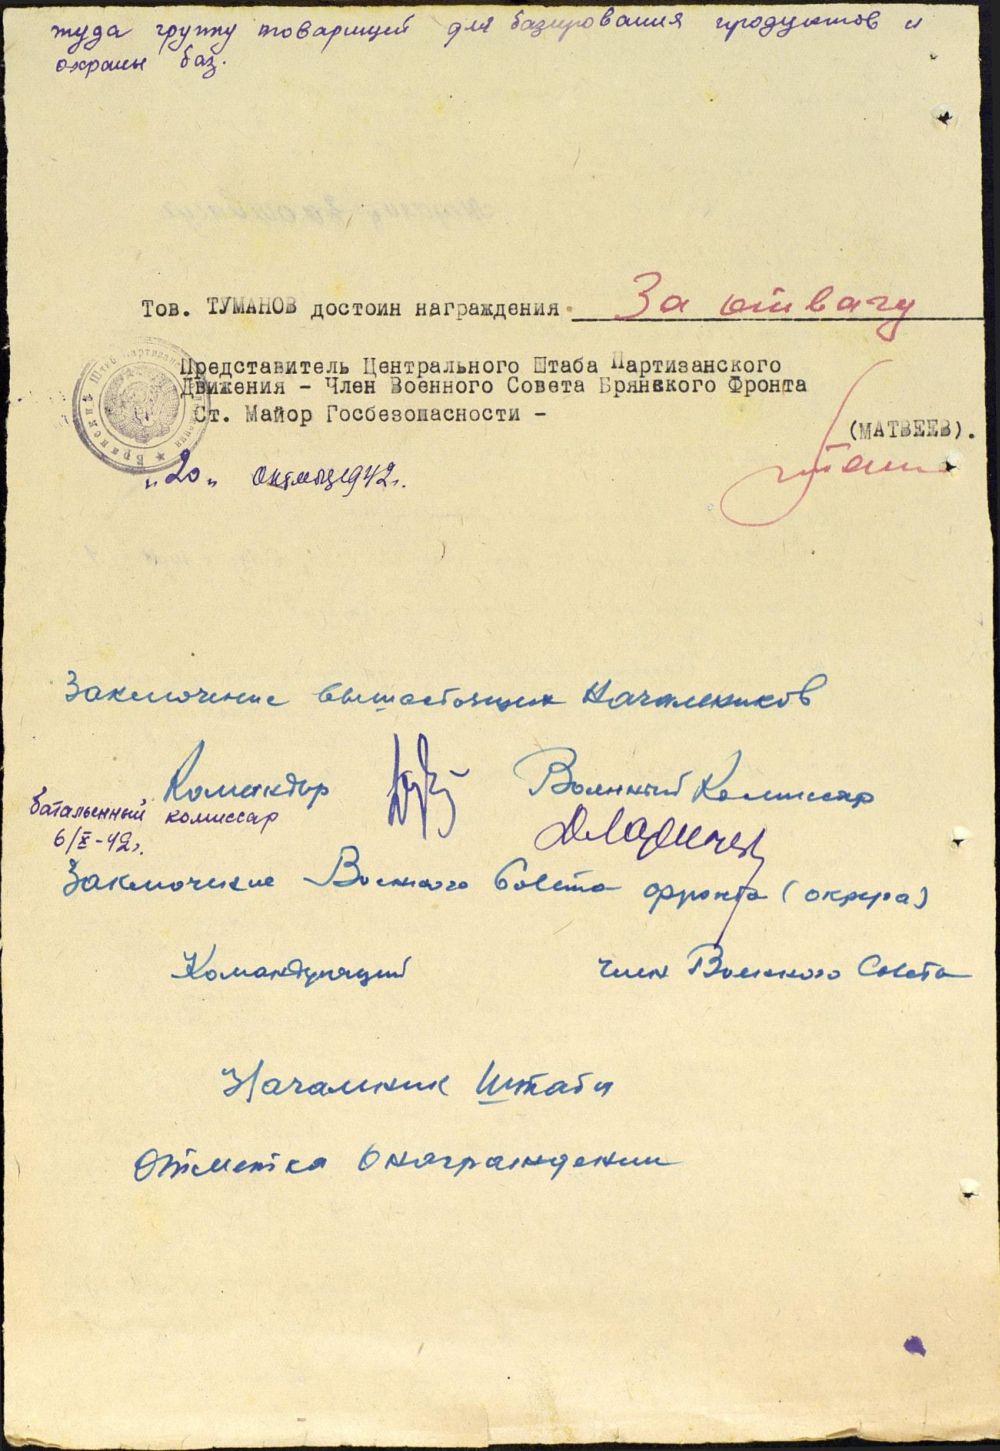 туда группу товарищей для базирования продуктов и
охраны баз.
Тов. ТУМАНОВ достоин награждения За отвагу
Представитель Центрального Штаба Партизанского
Движения - Член Военного Совета Брянского Фронта
Ст. Майор Госбезопасности -
(МАТВЕЕВ).
"20" октября 1942 г.
Заключение вышестоящих начальников
Командир Военный Комиссар
батальенный комиссар
6/X-42г.
Заключение Военного Совета фронта (округа)
Командующий член Военного Совета
Начальник Штаба
Отметка о награждении